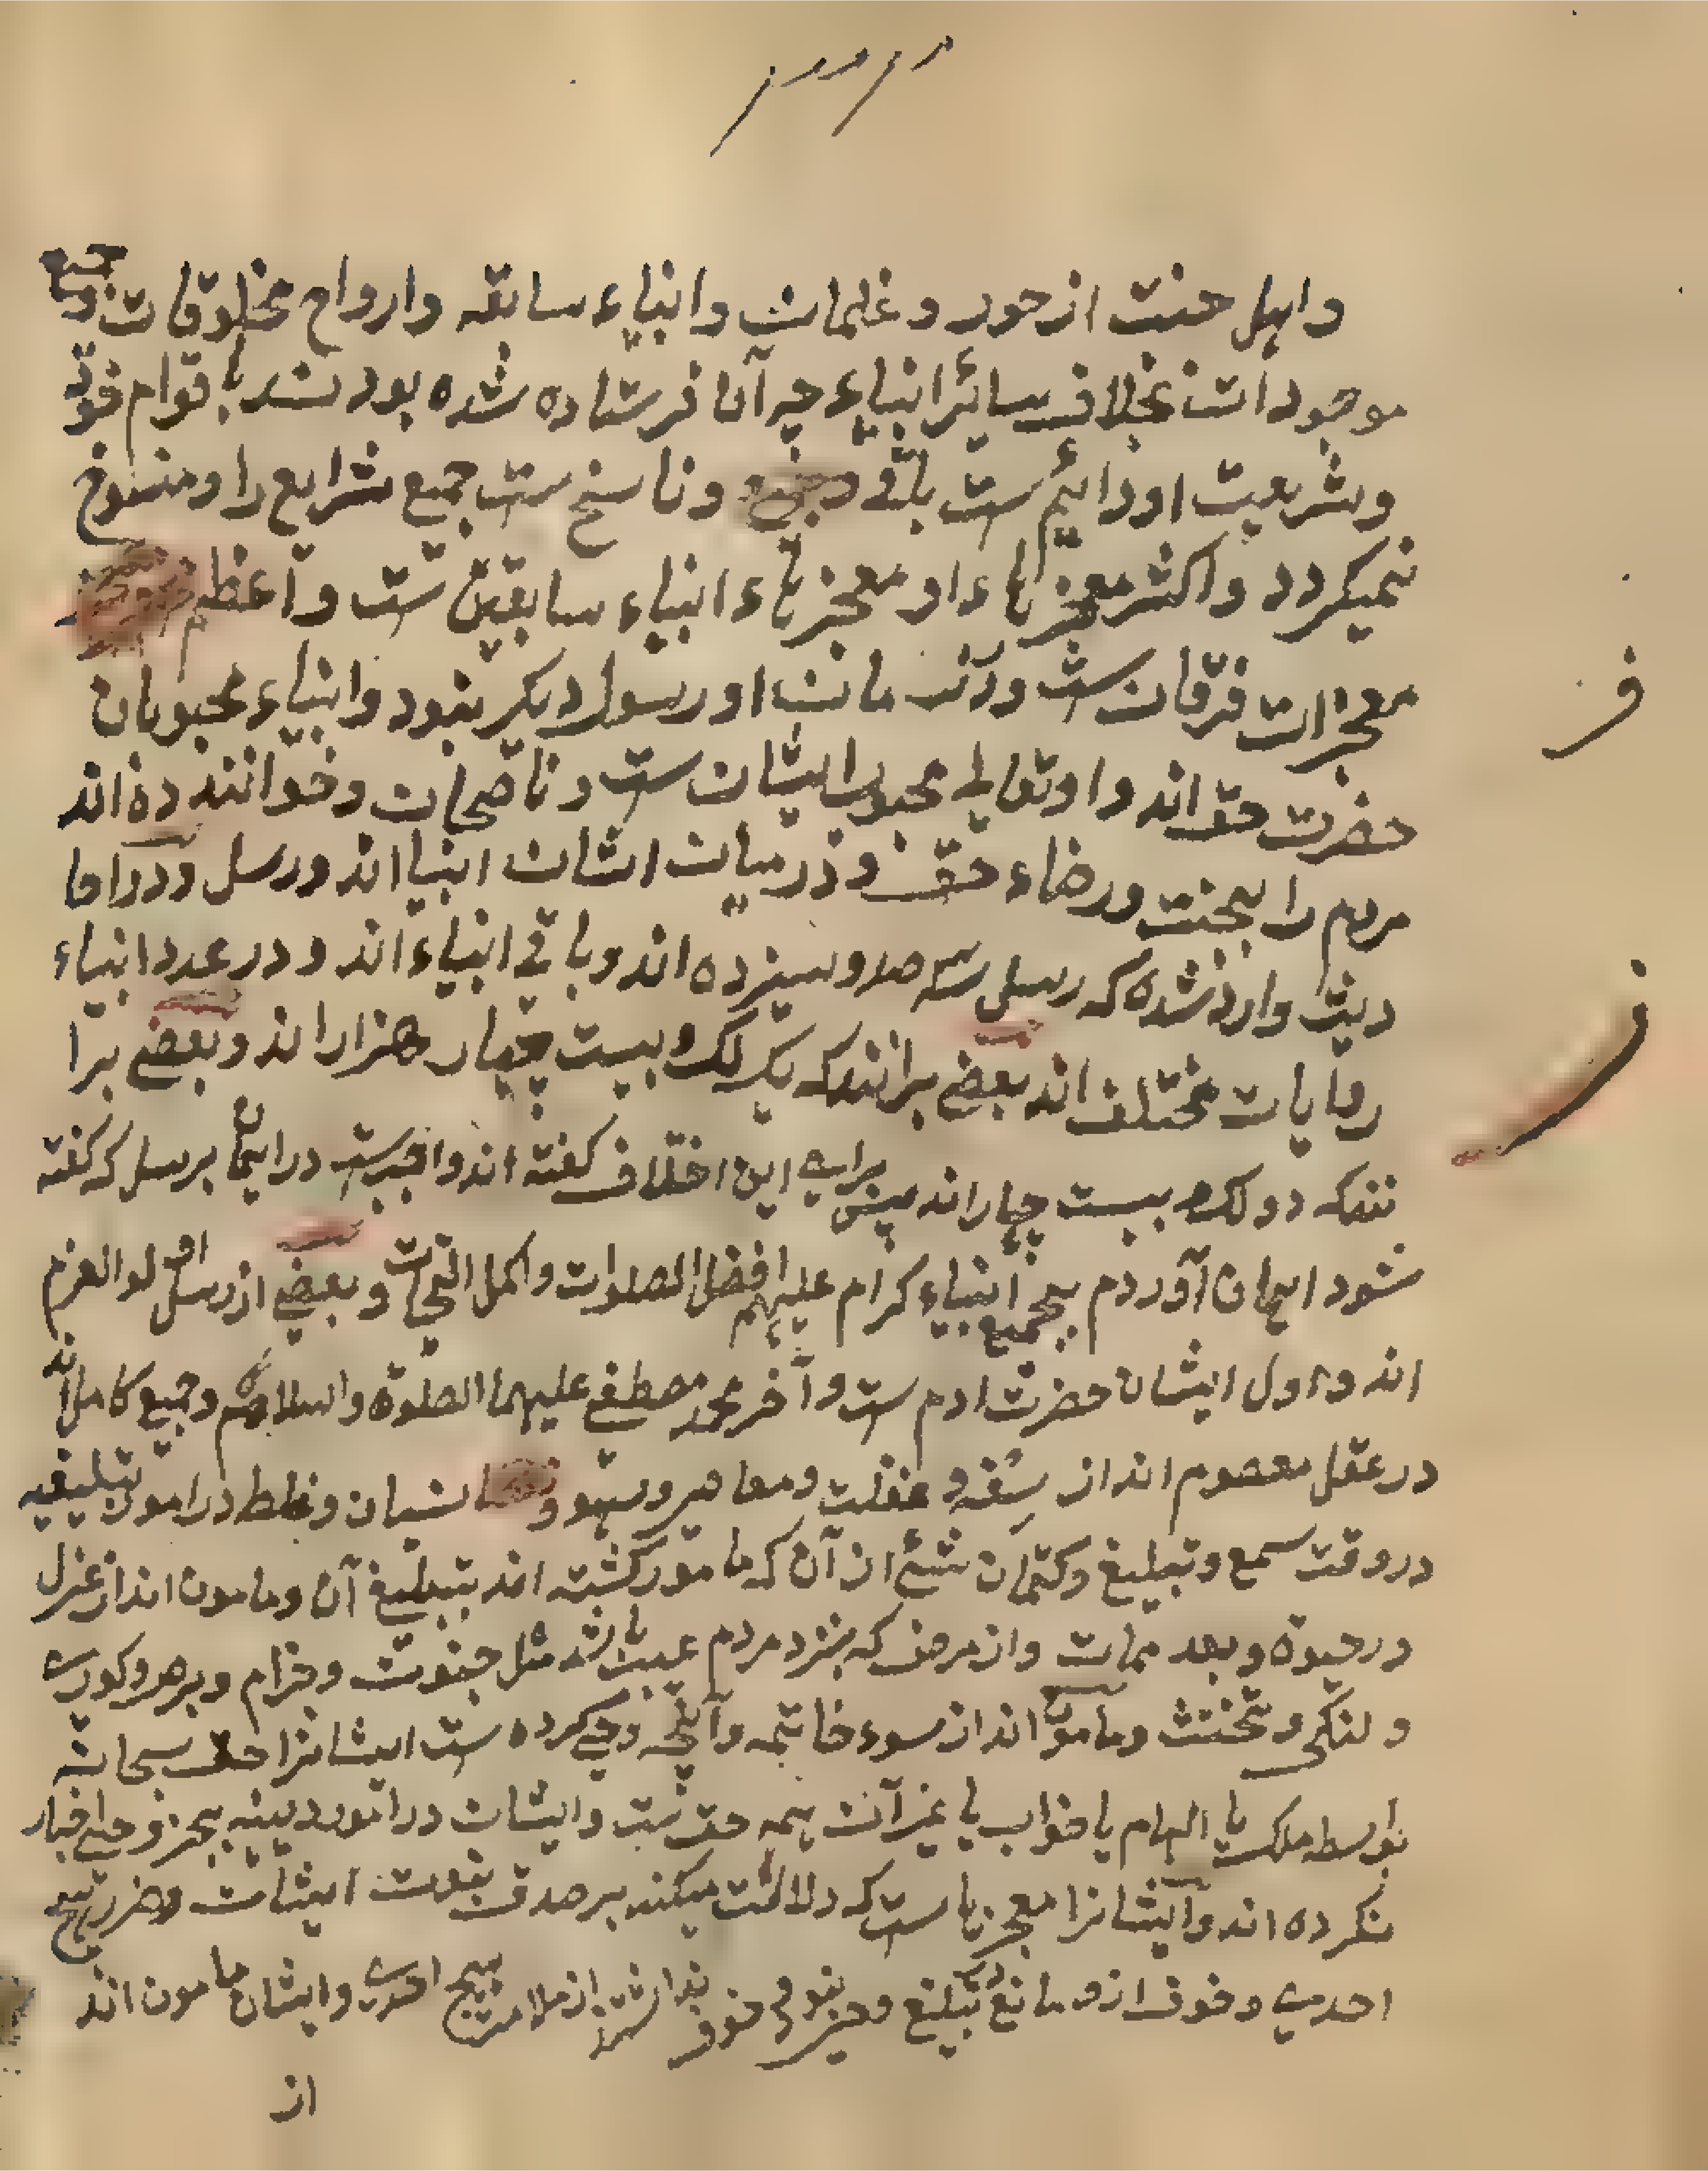 واهل جنت از حور و غلمان وانبیاء سابقه وارواح مخلوقات و جمیع
موجودات بخلاف سائر انبیاء چه آنان فرستاده شده بودند باقوام خود
وشریعت او دایم ست باقی و ناسخ ست جمیع شرایع را و منسوخ
نمیگردد واکثر معجزهاء او معجزهاء انبیاء سابقین ست و اعظم
معجزات فرقان ست و در زمان او رسول دیگر نبود وانبیاء محبوبان
حضرت حق اند و او تعالی محبوب ایشان ست و ناصحان و خوانندده اند
مردم را بجنت و رضاء حق و درمیان ایشان انبیا اند و رسل و در احا
دیث وارد شده که رسل سه صد و سیزده اند و باقی انبیاء اند و در عدد انبیاء
روایات مختلف اند بعضی برانند که یک لک و بیست چهار هزار اند و بعضی برا
نند که دو لک و بیست چهار اند برای این اختلاف گفته اند واجب ست در ایمان برسل که گفته
شود ایمان آوردم بجمیع انبیاء کرام علیهم افضل الصلوات واکمل التحیات و بعضی از رسل اولوالعزم
اند و اول ایشان حضرت ادم ست و آخر محمد مصطفی علیهما الصلوة والسلام و جمیع کامل اند
در عقل معصوم اند از سفه و غفلت و معاصی و سهو و نسیان و غلط در امور تبلیغیه
در وقت سمع و تبلیغ و کتمان شئ از آن که مامور گشته اند بتبلیغ آن و مامون اند از عزل
در حیوة و بعد ممات و از مرض که بنزد مردم عیب باشد مثل جنون و جزام و برص و کوری
و لنگی و تخنث و مامون اند از سوء خاتمه و آنچه وحی کرده ست ایشانرا حق سبحانه
بواسطه ملک یا الهام یا خواب یا غیر آن همه حق ست و ایشان در امور دینیه بجز وحی اخبار
نکرده اند و ایشانرا معجزها ست که دلالت میکند بر صدق نبوت ایشان و ضرر هیچ
احدی و خوف ازو مانع تبلیغ و خوف نداشتند از ملامت هیچ احدی و ایشان مامون اند
از
ف
ف